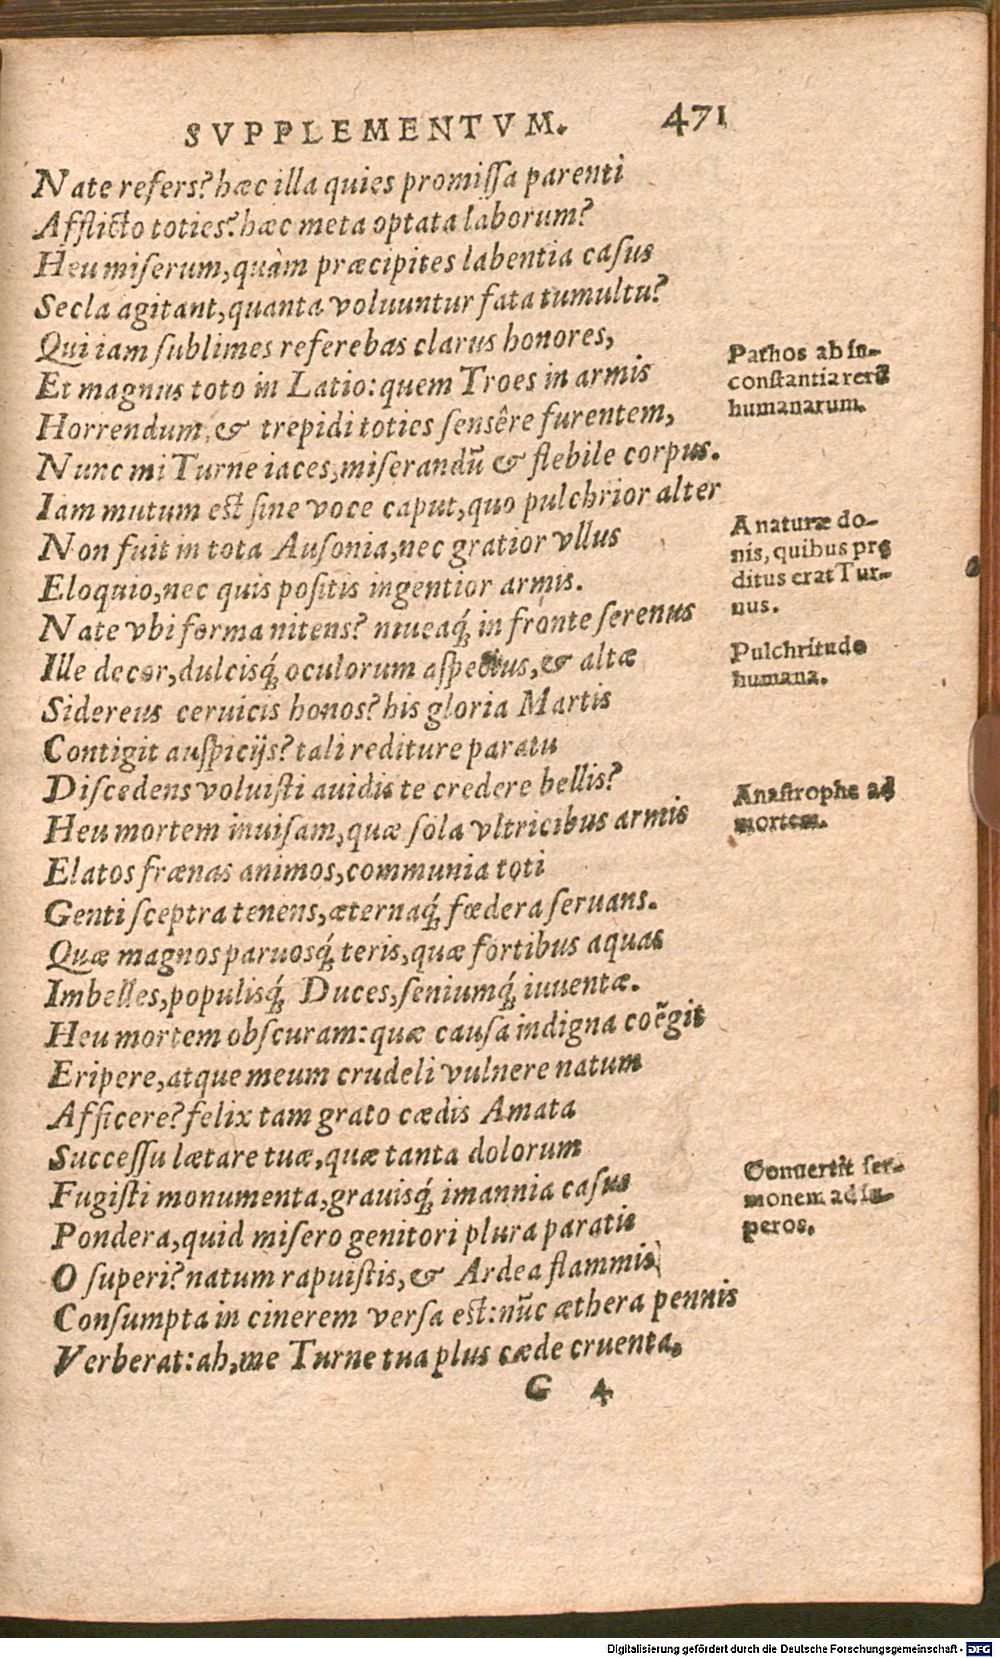 SVPPLEMENTVM. 471
Nate refers? hæc illa quies promiſſa parenti
Afflicto toties? hæc meta optata laborum?
Heu miſerum, quàm præcipites labentia caſus
Secla agitant, quanta voluuntur fata tumultu?
Qui iam ſublimes referebas clarus honores,
Et magnus toto in Latio: quem Troes in armis
Horrendum, & trepidi toties ſensêre furentem,
Nunc mi Turne iaces, miſerandū & flebile corpus.
Iam mutum est ſine voce caput, quo pulchrior alter
Non fuit in tota Auſonia, nec gratior vllus
Eloquio, nec quis poſitis ingentior armis.
Nate vbi forma nitens? niueaq́; in fronte ſerenus
Ille decor, dulcisq́; oculorum aſpectus, & altæ
Sidereus ceruicis honos? his gloria Martis
Contigit auſpicijs? tali rediture paratu
Diſcedens voluiſti auidis te credere bellis?
Heu mortem inuiſam, quæ ſola vltricibus armis
Elatos frænas animos, communia toti
Genti ſceptra tenens, æternaq́; fœdera ſeruans.
Quæ magnos paruosq́; teris, quæ fortibus æquas
Imbelles, populisq́; Duces, ſeniumq́; iuuentæ.
Heu mortem obſcuram: quæ cauſa indigna coëgit
Eripere, atque meum crudeli vulnere natum
Afficere? felix tam grato cædis Amata
Succeſſu lætare tuæ, quæ tanta dolorum
Fugiſti monumenta, grauisq́; imannia caſus
Pondera, quid miſero genitori plura paratis
O ſuperi? natum rapuiſtis, & Ardea flammis
Conſumpta in cinerem verſa est: nūc æthera pennis
Verberat: ah, me Turne tua plus cæde cruenta.
G 4
Pathos ab in-
conſtantia rerū
humanarum.
A naturæ do-
nis, quibus prę
ditus erat Tur-
nus.
Pulchritudo
humana.
Anaſtrophe ad
mortem.
Conuertit ſer-
monem ad ſu-
peros.
Digitalisierung gefördert durch die Deutsche Forschungsgemeinschaft - DFG